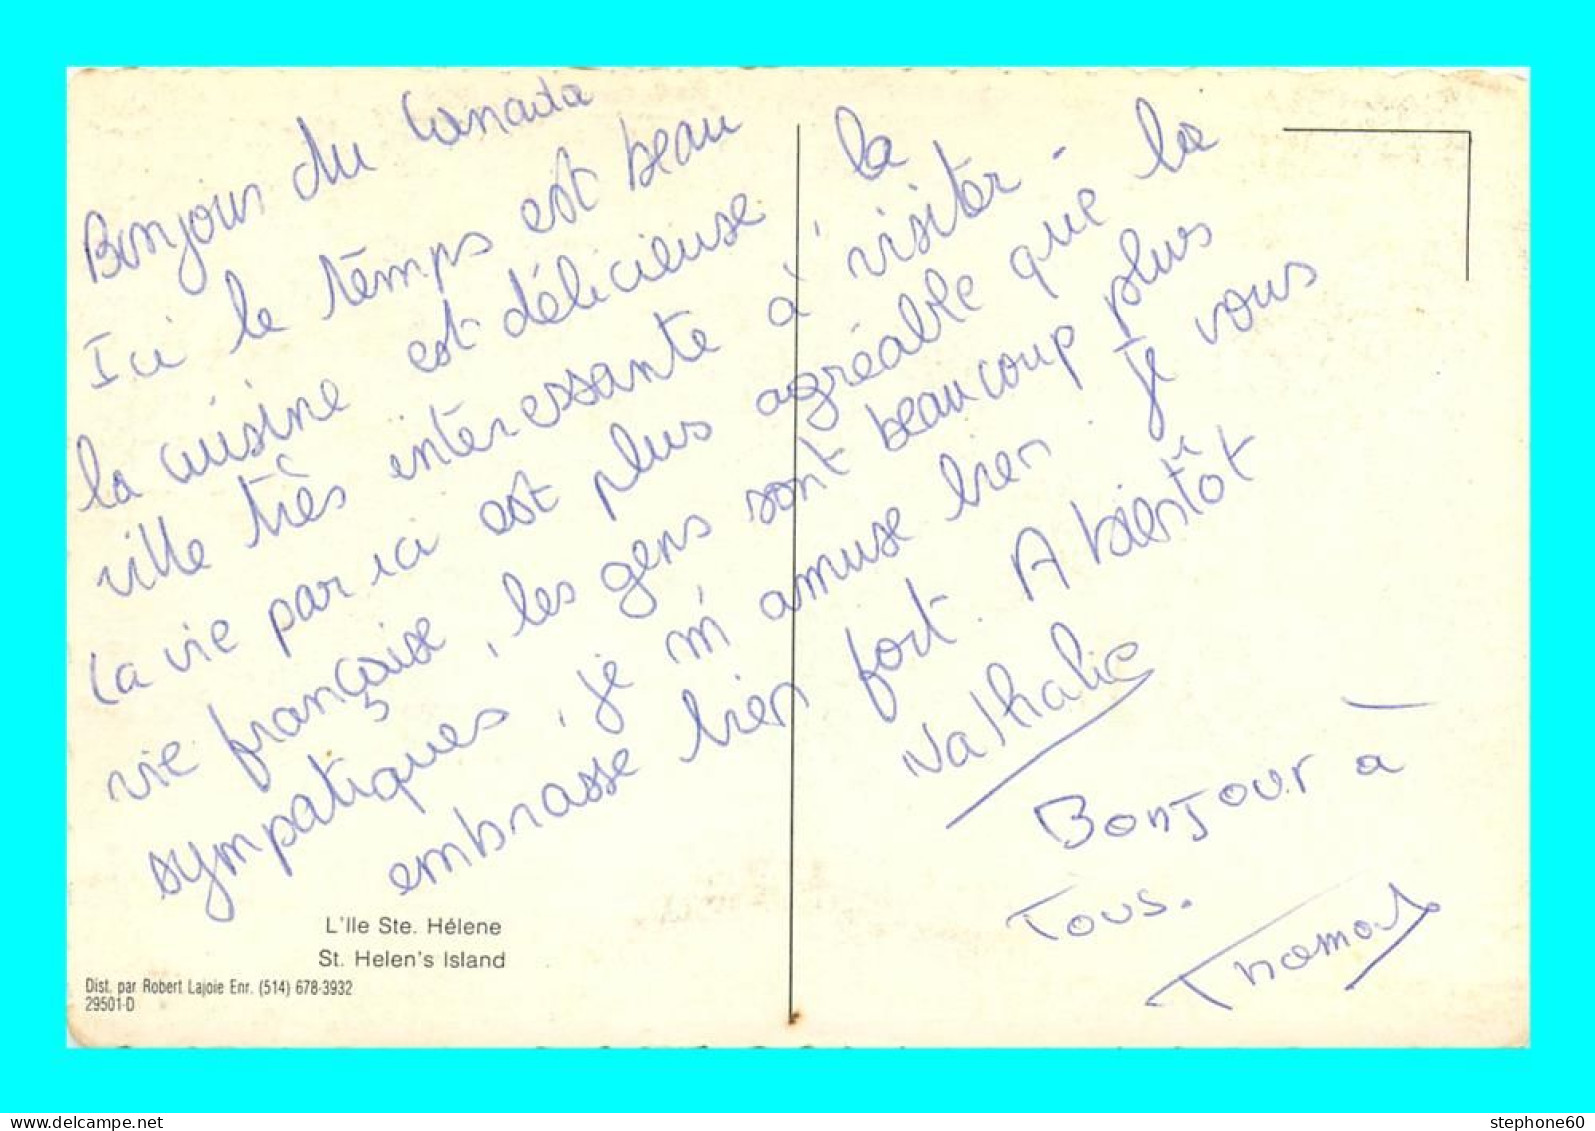 Bonjour du Canada
Ici le temps est beau
la cuisine est délicieuse la
ville très intéressante à visiter -
La vie par ici est plus agréable que la
vie française, les gens sont beaucoup plus
sympatiques, je m'amuse bien. Je vous
embrasse bien fort. A bientôt
Nathalie
Bonjour à
Tous.
L'Ile Ste. Hélene
St. Helen's Island
Dist. par Robert Lajoie Enr. (514) 678-3932
29501-D
stephone60